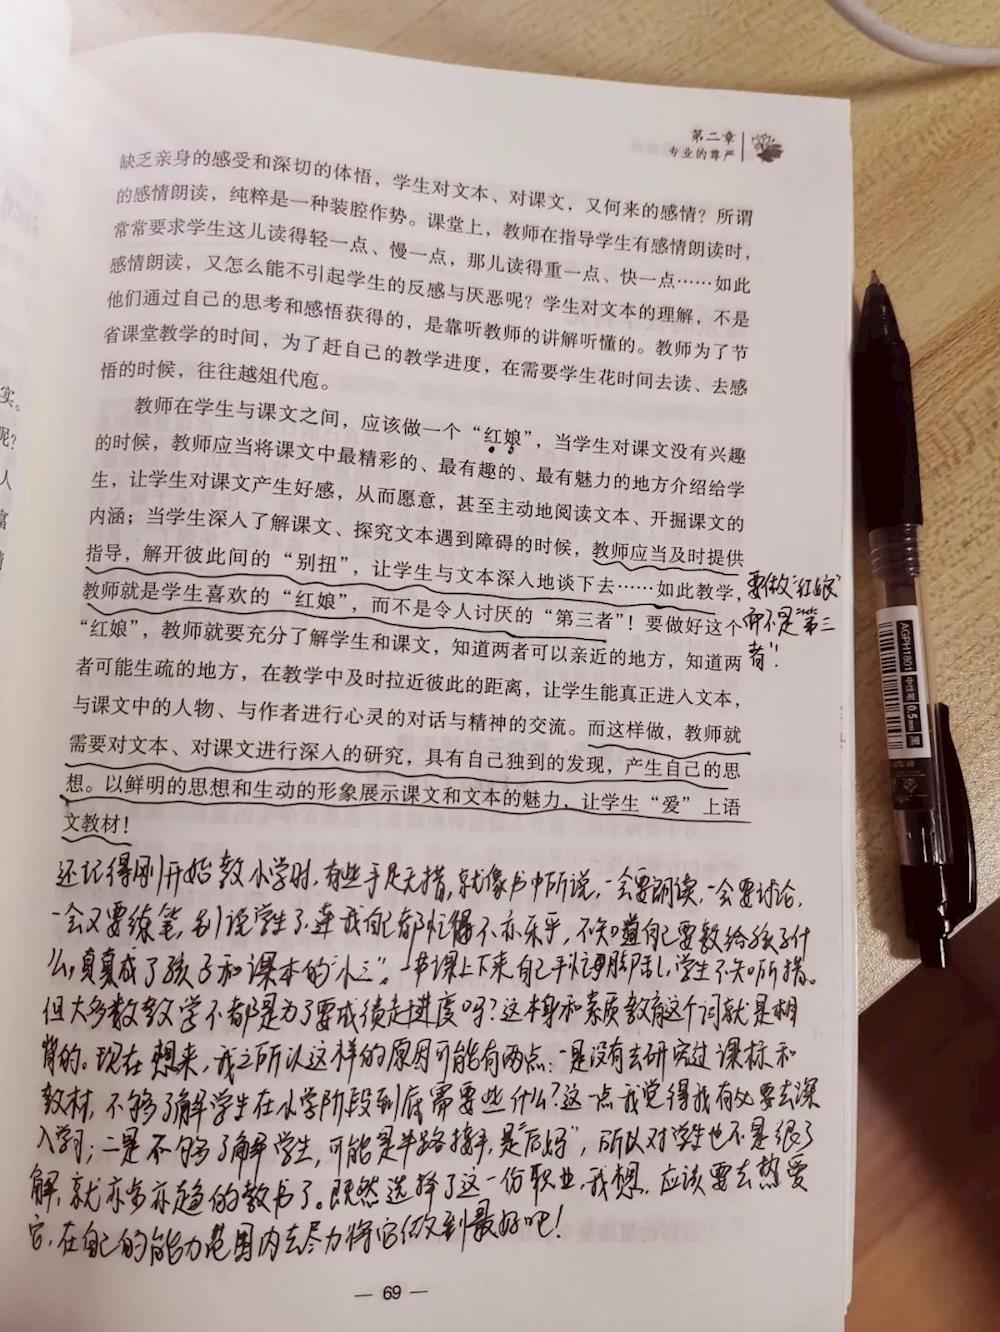 第二章
专业的尊严
缺乏亲身的感受和深切的体悟，学生对文本、对课文，又何来的感情？所谓
的感情朗读，纯粹是一种装腔作势。课堂上，教师在指导学生有感情朗读时，
常常要求学生这儿读得轻一点、慢一点，那儿读得重一点、快一点……如此
感情朗读，又怎么能不引起学生的反感与厌恶呢？学生对文本的理解，不是
他们通过自己的思考和感悟获得的，是靠听教师的讲解听懂的。教师为了节
省课堂教学的时间，为了赶自己的教学进度，在需要学生花时间去读、去感
悟的时候，往往越俎代庖。
教师在学生与课文之间，应该做一个“红娘”，当学生对课文没有兴趣
的时候，教师应当将课文中最精彩的、最有趣的、最有魅力的地方介绍给学
生，让学生对课文产生好感，从而愿意，甚至主动地阅读文本、开掘课文的
内涵；当学生深入了解课文、探究文本遇到障碍的时候，教师应当及时提供
指导，解开彼此间的“别扭”，让学生与文本深入地谈下去……如此教学，
教师就是学生喜欢的“红娘”，而不是令人讨厌的“第三者”！要做好这个
“红娘”，教师就要充分了解学生和课文，知道两者可以亲近的地方，知道两
者可能生疏的地方，在教学中及时拉近彼此的距离，让学生能真正进入文本，
与课文中的人物、与作者进行心灵的对话与精神的交流。而这样做，教师就
需要对文本、对课文进行深入的研究，具有自己独到的发现，产生自己的思
想。以鲜明的思想和生动的形象展示课文和文本的魅力，让学生“爱”上语
文教材！
要做“红娘”
而不是“第三
者”！
还记得刚开始教小学时，有些手足无措，就像书中所说，一会要朗读，一会要讨论，
一会又要练笔，别说学生了，连我自己都忙得不亦乐乎，不知道自己要教给孩子什
么，真真成了孩子和课本的“小三”。一节课上下来自己手忙脚乱，学生不知所措。
但大多数教学不都是为了要成绩走进度吗？这本身和素质教育这个词就是相
背的。现在想来，我之所以这样的原因可能有两点：一是没有去研究过课标和
教材，不够了解学生在小学阶段到底需要些什么？这一点我觉得我有必要去深
入学习；二是不够了解学生，可能是半路接手，是“后妈”，所以对学生也不是很了
解，就亦步亦趋的教书了。既然选择了这一份职业，我想，应该要去热爱
它，在自己的能力范围内去尽力将它做到最好吧！
— 69 —
实。
呢？
人
富
AGPH1801 中性笔 0.5mm 黑